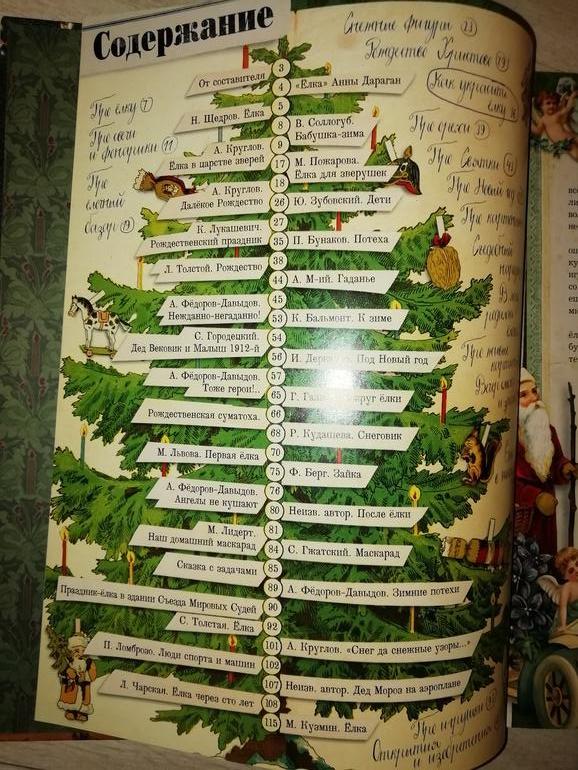 Содержание
Снежные фигуры 23
Рождество Христово
Как украсить
ёлку
Про ёлку 7
Про свечи
и фонарики 11
Про
ёлочный
базар 19
Про орехи 39
Про Святки
Про Новый год
Про
Съедобный
3
От составителя
4 «Ёлка» Анны Дараган
5
Н. Щедров. Ёлка
8 В. Соллогуб.
Бабушка-зима
9
А. Круглов.
Ёлка в царстве зверей
17 М. Пожарова.
Ёлка для зверушек
18
А. Круглов.
Далёкое Рождество
26 Ю. Зубовский. Дети
27
К. Лукашевич.
Рождественский праздник
35 П. Бунаков. Потеха
38
Л. Толстой. Рождество
44 А. М-ий. Гаданье
45
А. Фёдоров-Давыдов.
Нежданно-негаданно!
53 К. Бальмонт. К зиме
54
С. Городецкий.
Дед Вековик и Малыш 1912-й
56 И. Под Новый год
57
А. Фёдоров-Давыдов.
Тоже герои!..
65 Г. ёлки
66
Рождественская суматоха.
68 Р. Кудашева. Снеговик
70
М. Львова. Первая ёлка
75 Ф. Берг. Зайка
76
А. Фёдоров-Давыдов.
Ангелы не кушают
80 Неизв. автор. После ёлки
81
М. Лидерт.
Наш домашний маскарад
84 С. Гжатский. Маскарад
85
Сказка с задачами
89 А. Фёдоров-Давыдов. Зимние потехи
90
Праздник-ёлка в здании Съезда Мировых Судей
92
С. Толстая. Ёлка
101 А. Круглов. «Снег да снежные узоры...»
102
П. Ломброзо. Люди спорта и машин
107 Неизв. автор. Дед Мороз на аэроплане
108
Л. Чарская. Ёлка через сто лет
115 М. Кузмин. Ёлка
Про игрушки
Открытия
и изобретения